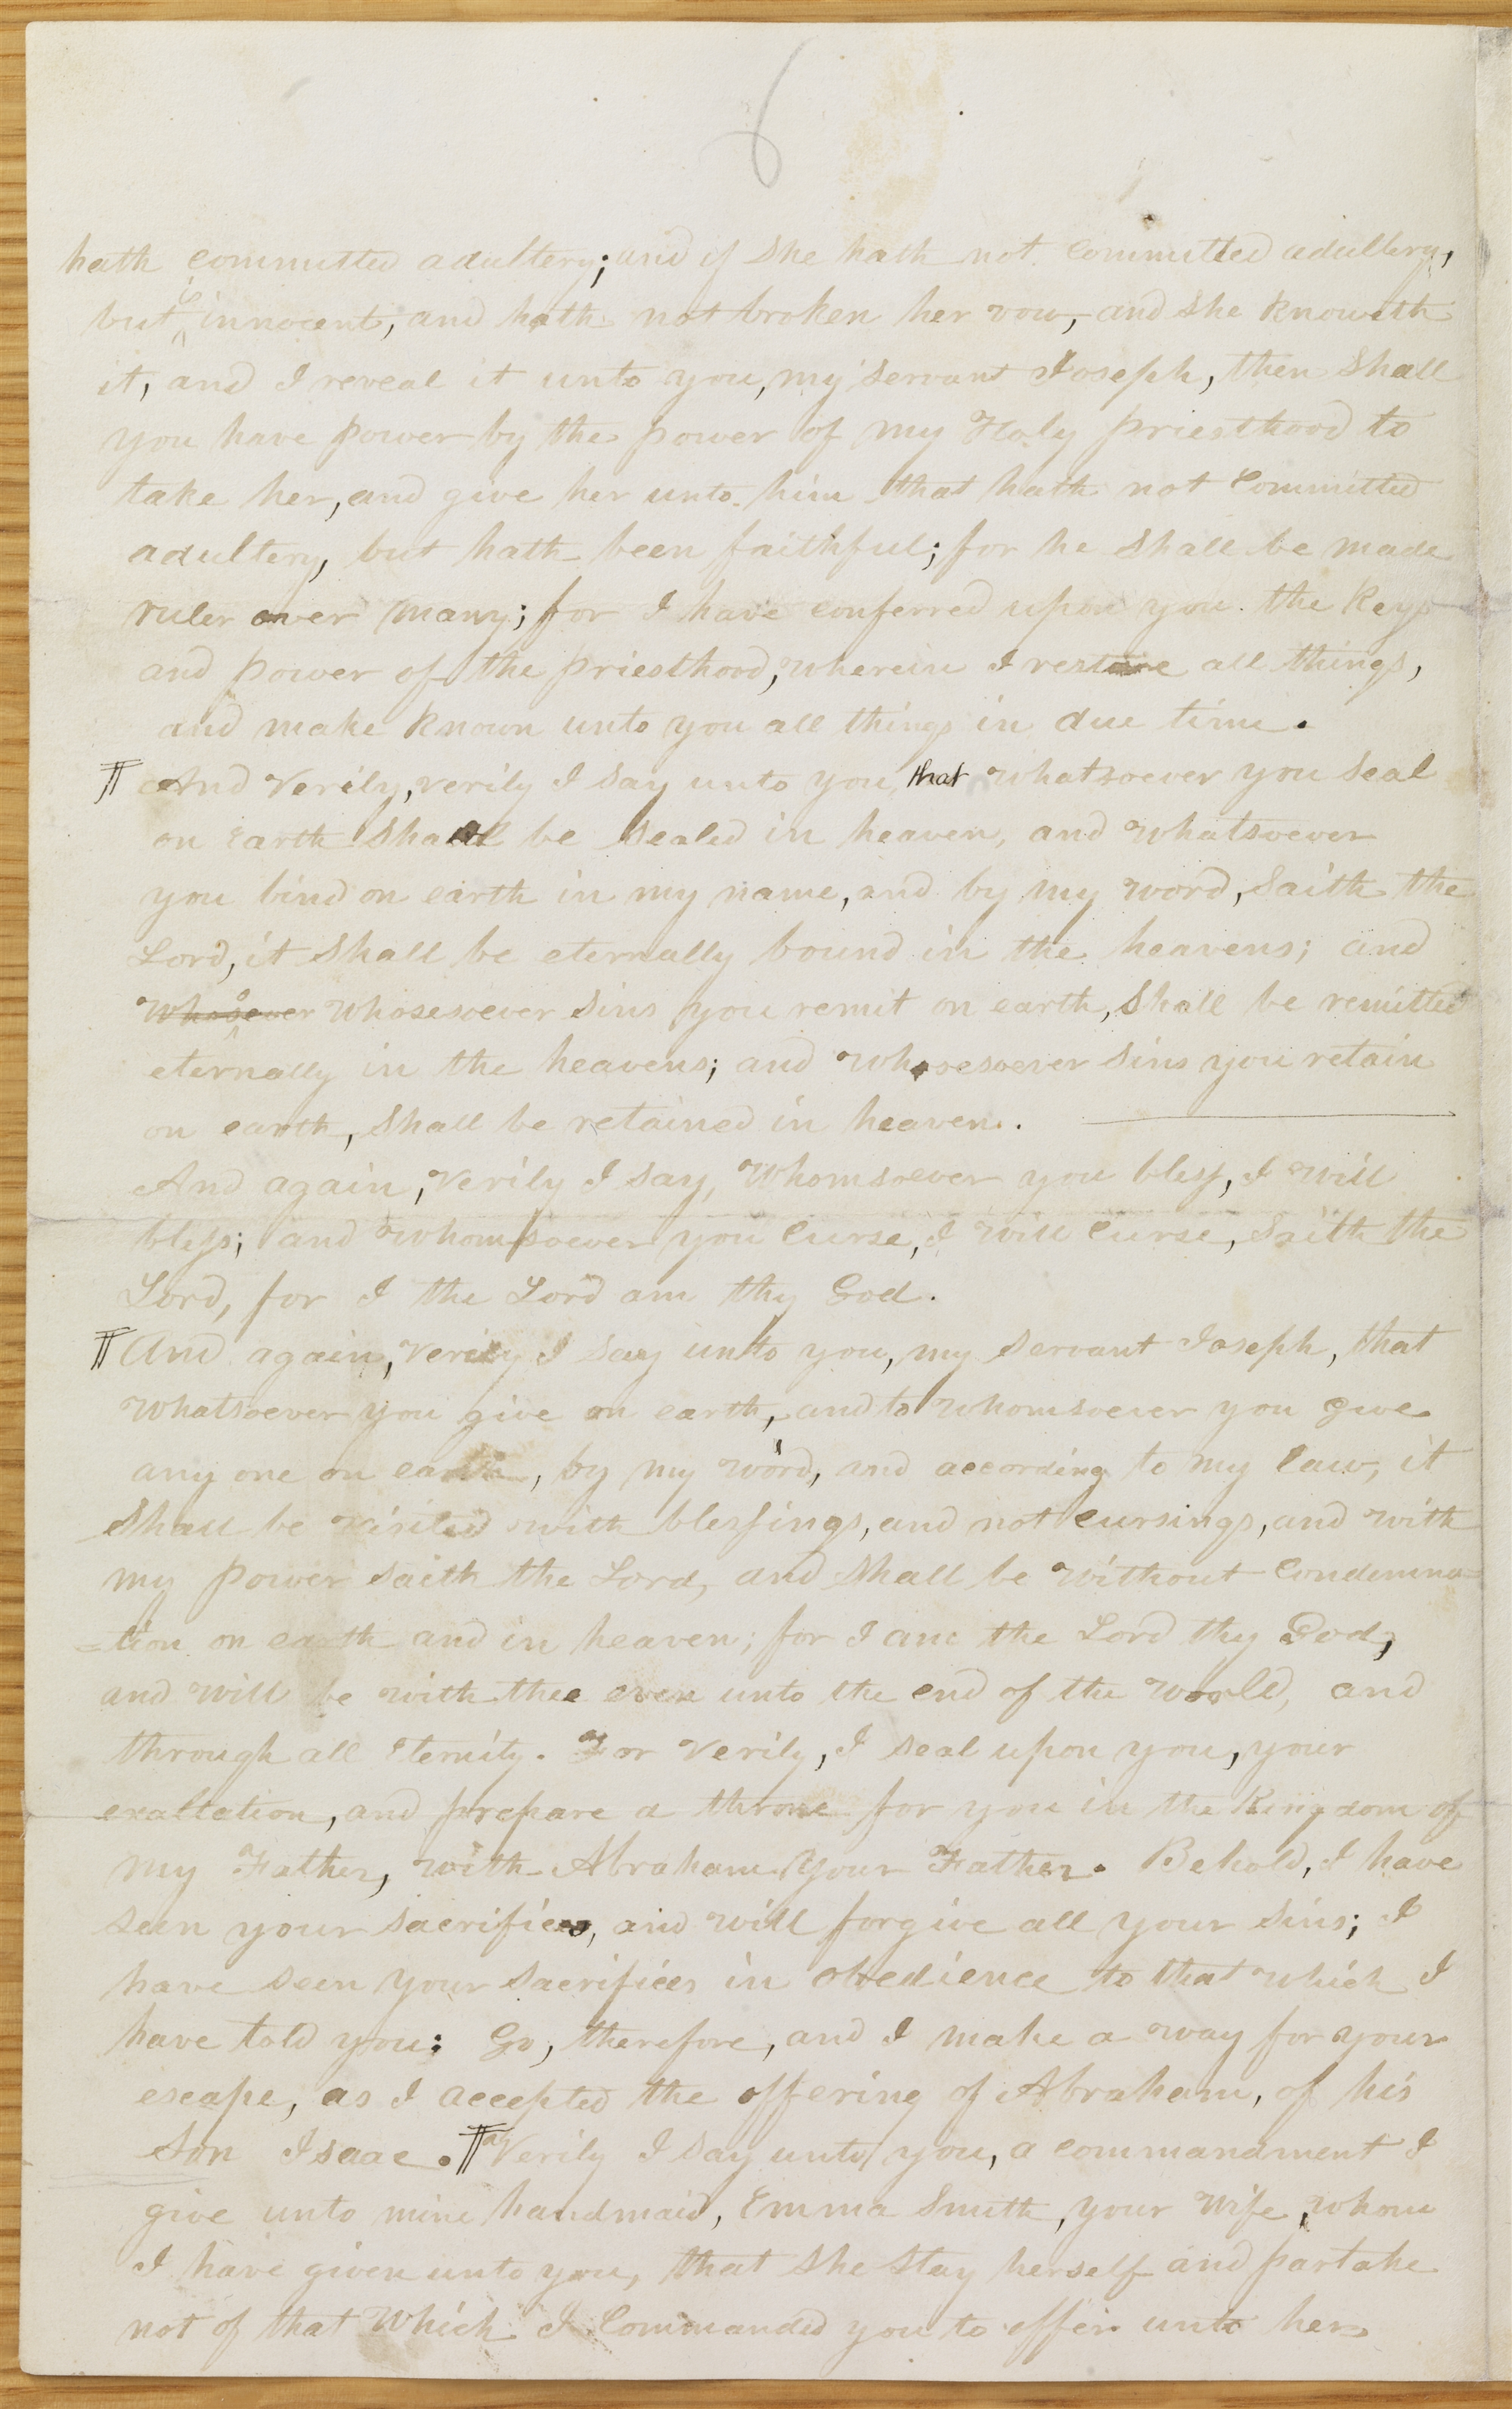 6
hath committed adultery; and if she hath not committed adultery,
but is innocent, and hath not broken her vow, and she knoweth
it, and I reveal it unto you, my servant Joseph, then shall
you have power by the power of my Holy priesthood to
take her, and give her unto him that hath not committed
adultery, but hath been faithful; for he shall be made
ruler over many; for I have conferred upon you the keys
and power of the priesthood, wherein I restore all things,
and make known unto you all things in due time.
¶ And verily, verily I say unto you, that whatsoever you seal
on earth shall be sealed in heaven, and whatsoever
you bind on earth in my name, and by my word, saith the
Lord, it shall be eternally bound in the heavens; and
whosoever whosesoever sins you remit on earth, shall be remitted
eternally in the heavens; and whosesoever sins you retain
on earth, shall be retained in heaven.
And again, verily I say, whomsoever you bless, I will
bless; and whomsoever you curse, I will curse, saith the
Lord, for I the Lord am thy God.
¶ And again, verily I say unto you, my servant Joseph, that
whatsoever you give on earth, and to whomsoever you give
any one on earth, by my word, and according to my law, it
shall be visited with blessings, and not cursings, and with
my power saith the Lord, and shall be without condemna=
=tion on earth and in heaven; for I am the Lord thy God,
and will be with thee even unto the end of the world, and
through all eternity. For verily, I seal upon you, your
exaltation, and prepare a throne for you in the kingdom of
my Father, with Abraham your Father. Behold, I have
seen your sacrifices, and will forgive all your sins; I
have seen your sacrifices in obedience to that which I
have told you: Go, therefore, and I make a way for your
escape, as I accepted the offering of Abraham, of his
son Isaac. ¶ Verily I say unto you, a commandment I
give unto mine handmaid, Emma Smith, your wife, whom
I have given unto you, that she stay herself and partake
not of that which I commanded you to offer unto her